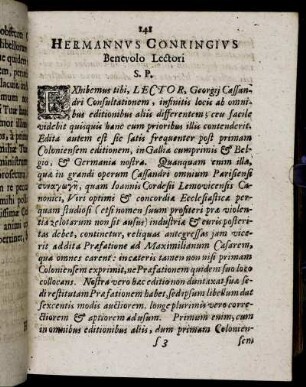 141
HERMANNVS CONRINGIVS
Benevolo Lectori
S. P.
EXhibemus tibi, LECTOR, Georgij Cassan-
dri Consultationem, infinitis locis ab omni-
bus editionibus aliis differentem; ceu facile
videbit quiquis hanc cum prioribus illis contenderit.
Edita autem est sic satis frequenter post primam
Coloniensem editionem, in Gallia cumprimis & Bel-
gio, & Germania nostra. Quanquam enim illa,
quæ in grandi operum Cassandri omnium Parisiensi
συναγωγῇ, quam Ioannis Cordesii Lemovicensis Ca-
nonici, Viri optimi & concordiæ Ecclesiasticæ per-
quam studiosi (etsi nomen suum profiteri præ violen-
tia zelotarum non sit ausus) industriæ & curis posteri-
tas debet, continetur, reliquas antegressas jam vice-
rit addita Præfatione ad Maximilianum Cæsarem,
qua omnes carent: in cæteris tamen non nisi primam
Coloniensem exprimit, ne Præfationem quidem suo loco
collocans. Nostra vero hæc editio non duntaxat sua se-
di restitutam Præfationem habet, sed ipsum libellum dat
sexcentis modis auctiorem. longe plurimis vero corre-
ctiorem & aptiorem ad usum. Primum enim, cum
in omnibus editionibus aliis, dum primam Colonien-
S 3 sem